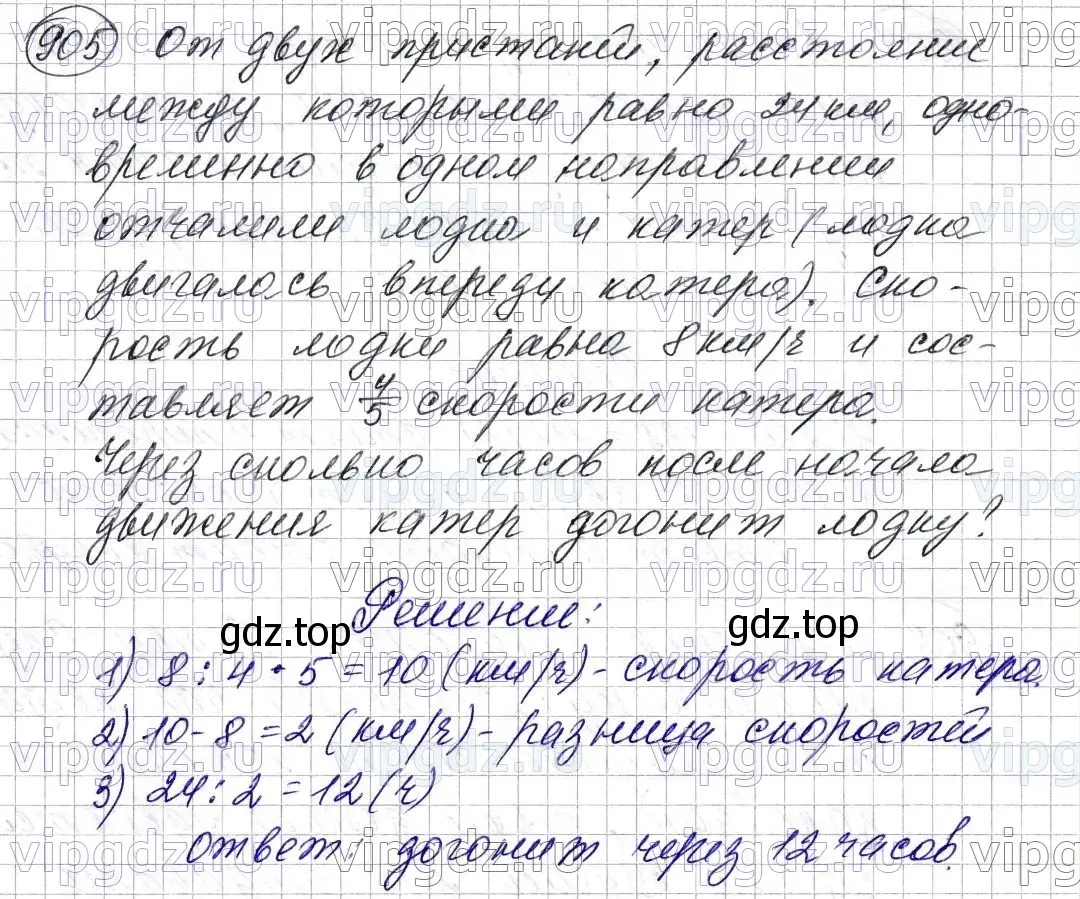 905 От двух пристаней, расстояние
между которыми равно 24 км, одно-
временно в одном направлении
отчалили лодка и катер (лодка
двигалась впереди катера). Ско-
рость лодки равна 8 км/ч и сос-
тавляет 4/5 скорости катера.
Через сколько часов после начала
движения катер догонит лодку?
Решение:
gdz.top gdz.top
1) 8 : 4 · 5 = 10 (км/ч) - скорость катера.
2) 10 - 8 = 2 (км/ч) - разница скоростей
3) 24 : 2 = 12 (ч)
ответ: догонит через 12 часов.
vipgdz.ru